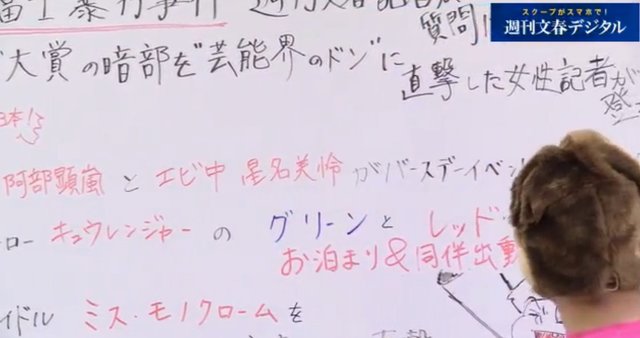 スクープがスマホで!
週刊文春デジタル
暴行事件
質問
大賞の暗部を"芸能界のドン"に
直撃した女性記者が
登
3本!
阿部顕嵐とエビ中 星名美怜がバースデーイベン
ロー キュウレンジャーの グリーンと レッド
お泊まり&同伴出動
イドル ミス・モノクロームを